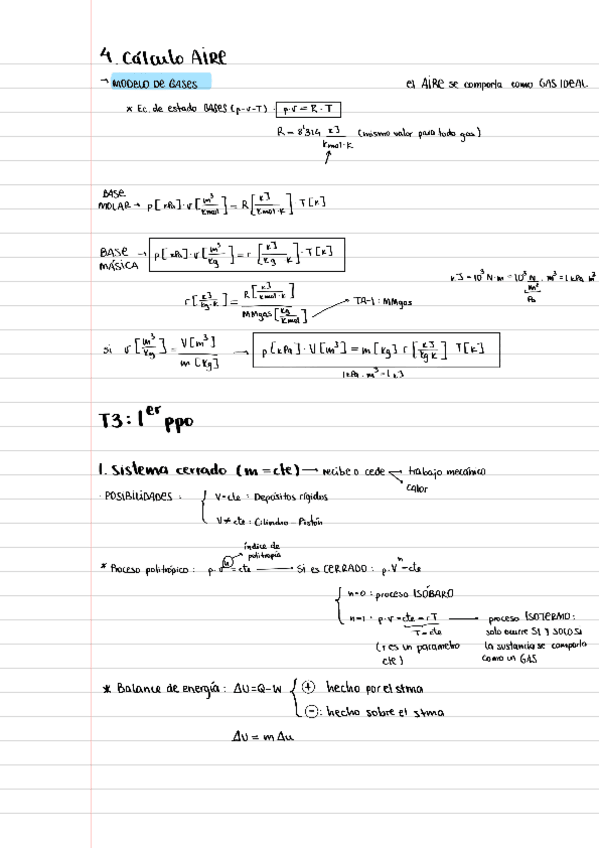 4. Cálculo AIRE
→ MODELO DE GASES el AIRE se comporta como GAS IDEAL.
* Ec. de estado GASES (p-v-T) . p·v = R · T
R = 8'314 kJ/kmol·K (mismo valor para todo gas)
BASE MOLAR → p[kPa]·v[m³/kmol] = R[kJ/kmol·K]·T[K]
BASE MÁSICA → p[kPa]·v[m³/kg] = r[kJ/kg K]·T[K]
kJ = 10³ N·m = 10³ N/m² · m³ = 1 kPa m³
Pa
r[kJ/kg·K] = R[kJ/kmol·K] / MMgas[kg/kmol] → TA-1: MMgas
si v[m³/kg] = V[m³] / m[kg] → p[kPa]·V[m³] = m[kg] r[kJ/kg K] T[K]
1kPa · m³ = 1 kJ
T3: 1er ppo
1. Sistema cerrado (m = cte) → recibe o cede trabajo mecánico
calor
· POSIBILIDADES : V=cte : Depósitos rígidos
V≠cte : Cilindro - Pistón
índice de politropía
* Proceso politrópico : p·v^n = cte → Si es CERRADO : p·V^n = cte
n=0 : proceso ISÓBARO
n=1 · p·v = cte = rT → proceso ISOTERMO:
T = cte solo ocurre SI Y SOLO SI
(r es un parametro la sustancia se comporta
cte) como un GAS
* Balance de energía : ΔU = Q-W + hecho por el stma
- : hecho sobre el stma
ΔU = m Δu